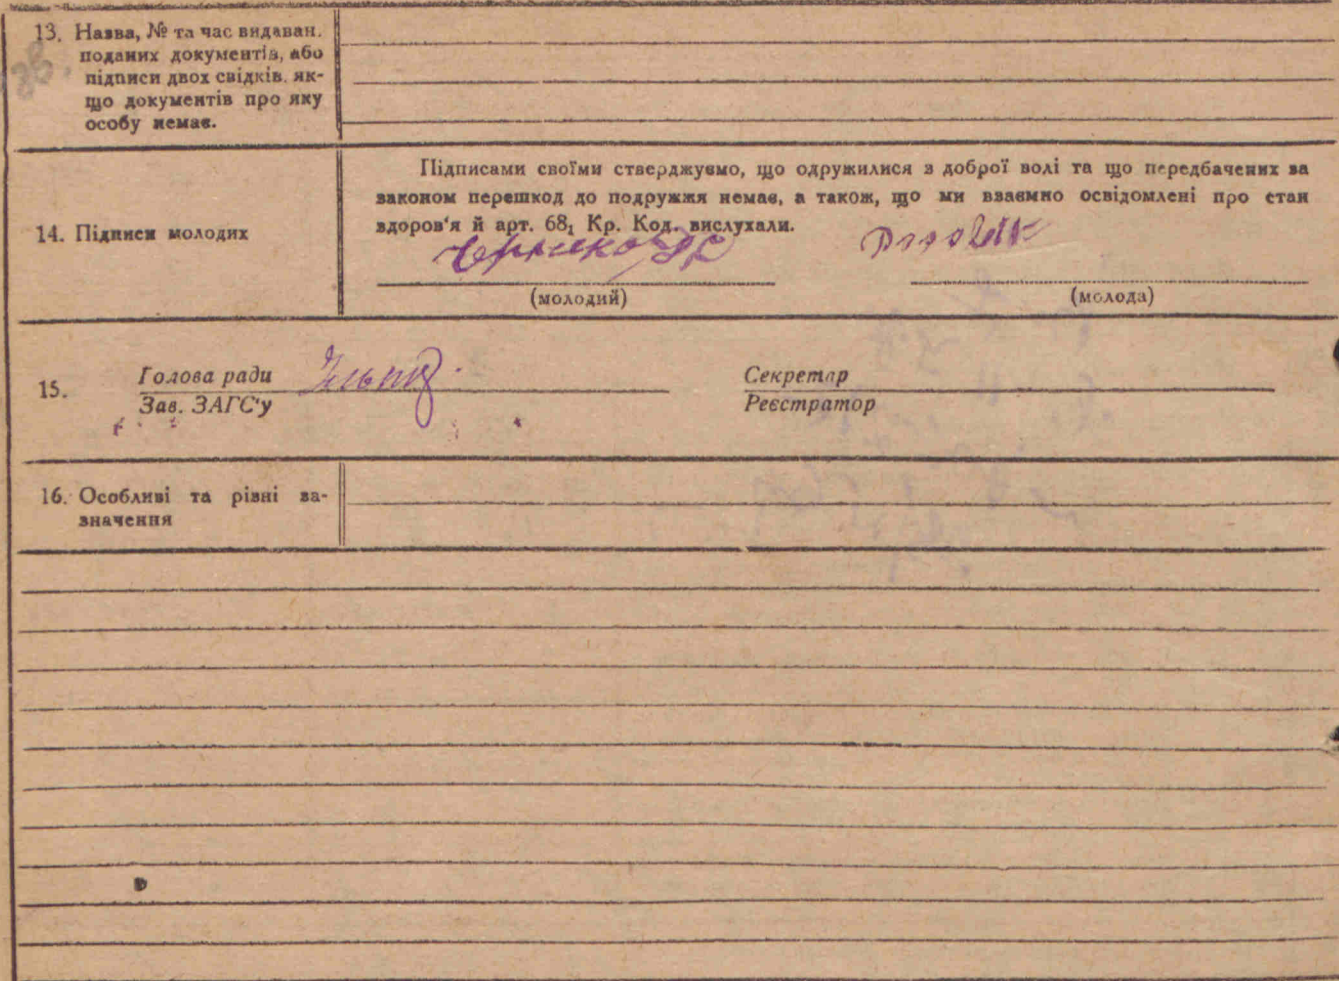 13. Назва, № та час видаван.
поданих документів, або
підписи двох свідків, як-
що документів про яку
особу немає.
Підписами своїми стверджуємо, що одружилися з доброї волі та що передбачених за
законом перешкод до подружжя немає, а також, що ми взаємно освідомлені про стан
здоров'я й арт. 68₁ Кр. Код. вислухали.
14. Підписи молодих
(молодий) (молода)
15. Голова ради Секретар
Зав. ЗАГС'у Реєстратор
16. Особливі та різні за-
значення